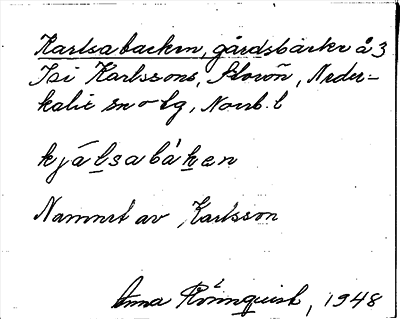 Karlsabacken, gårdsbacke å 3
Isi Karlssons, Storön, Neder-
kalix sn o tg, Norrb. l
kjáḷsabàken
Namnet av Karlsson
Anna Rönnquist, 1948